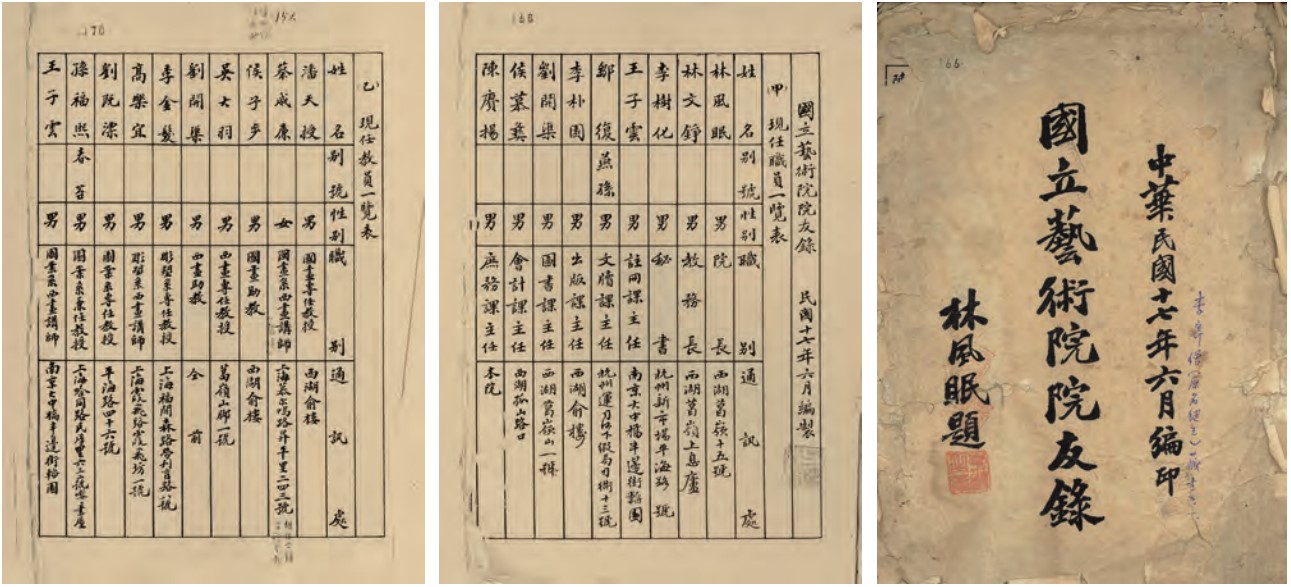 中華民國十七年六月編印
國立藝術院院友錄
林風眠題
166
168
國立藝術院院友錄 民國十七年六月編製
(甲) 現任職員一覽表
姓名 別號 性別 職別 通訊處
林風眠 男 院長 西湖葛嶺十五號
林文錚 男 教務長 西湖葛嶺上息廬
李樹化 男 秘書 杭州新市場平海路 號
王子雲 男 註冊課主任 南京大中橋半邊街
鄔復 燕孫 男 文牘課主任 杭州運司河下
李朴園 男 出版課主任 西湖俞樓
劉開渠 男 圖書課主任 西湖葛嶺山一樣
侯慕彝 男 會計課主任 西湖孤山路口
陳賡揚 男 庶務課主任 本院
170
(乙) 現任教員一覽表
姓名 別號 性別 職別 通訊處
潘天授 男 國畫系專任教授 西湖俞樓
蔡威廉 女 國畫系西畫講師 上海
侯子步 男 國畫助教 西湖俞樓
吳大羽 男 西畫專任教授 葛嶺山腳一號
劉開渠 男 西畫助教 仝前
李金髮 男 彫塑系專任教授 上海福開森路
高樂宜 男 彫塑系西畫講師 上海霞飛路霞飛坊一號
劉既漂 男 圖案系專任教授 平海路四十六號
孫福熙 春苔 男 圖案系兼任教授 上海哈同路民厚里
王子雲 男 圖案系西畫講師 南京大中橋半邊街